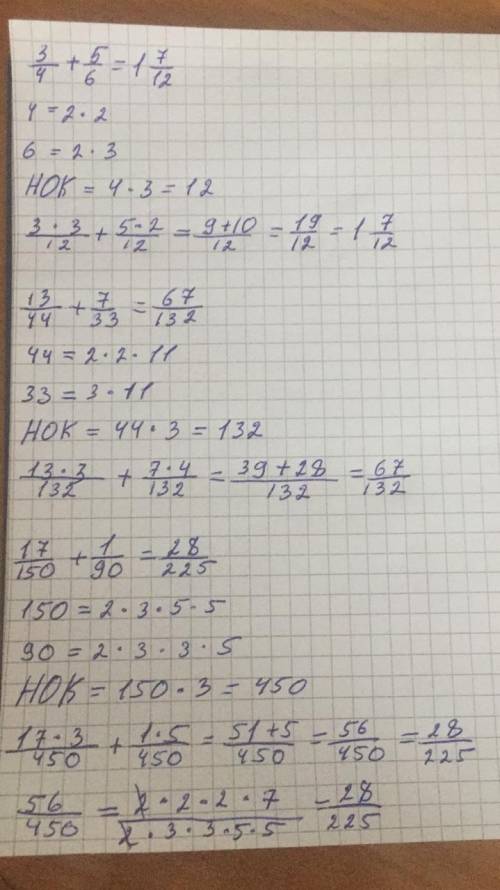 3/4 + 5/6 = 1 7/12
4 = 2 · 2
6 = 2 · 3
НОК = 4 · 3 = 12
3 · 3/12 + 5 · 2/12 = 9 + 10/12 = 19/12 = 1 7/12
13/44 + 7/33 = 67/132
44 = 2 · 2 · 11
33 = 3 · 11
НОК = 44 · 3 = 132
13 · 3/132 + 7 · 4/132 = 39 + 28/132 = 67/132
17/150 + 1/90 = 28/225
150 = 2 · 3 · 5 · 5
90 = 2 · 3 · 3 · 5
НОК = 150 · 3 = 450
17 · 3/450 + 1 · 5/450 = 51 + 5/450 = 56/450 = 28/225
56/450 = 2 · 2 · 2 · 7/2 · 3 · 3 · 5 · 5 = 28/225